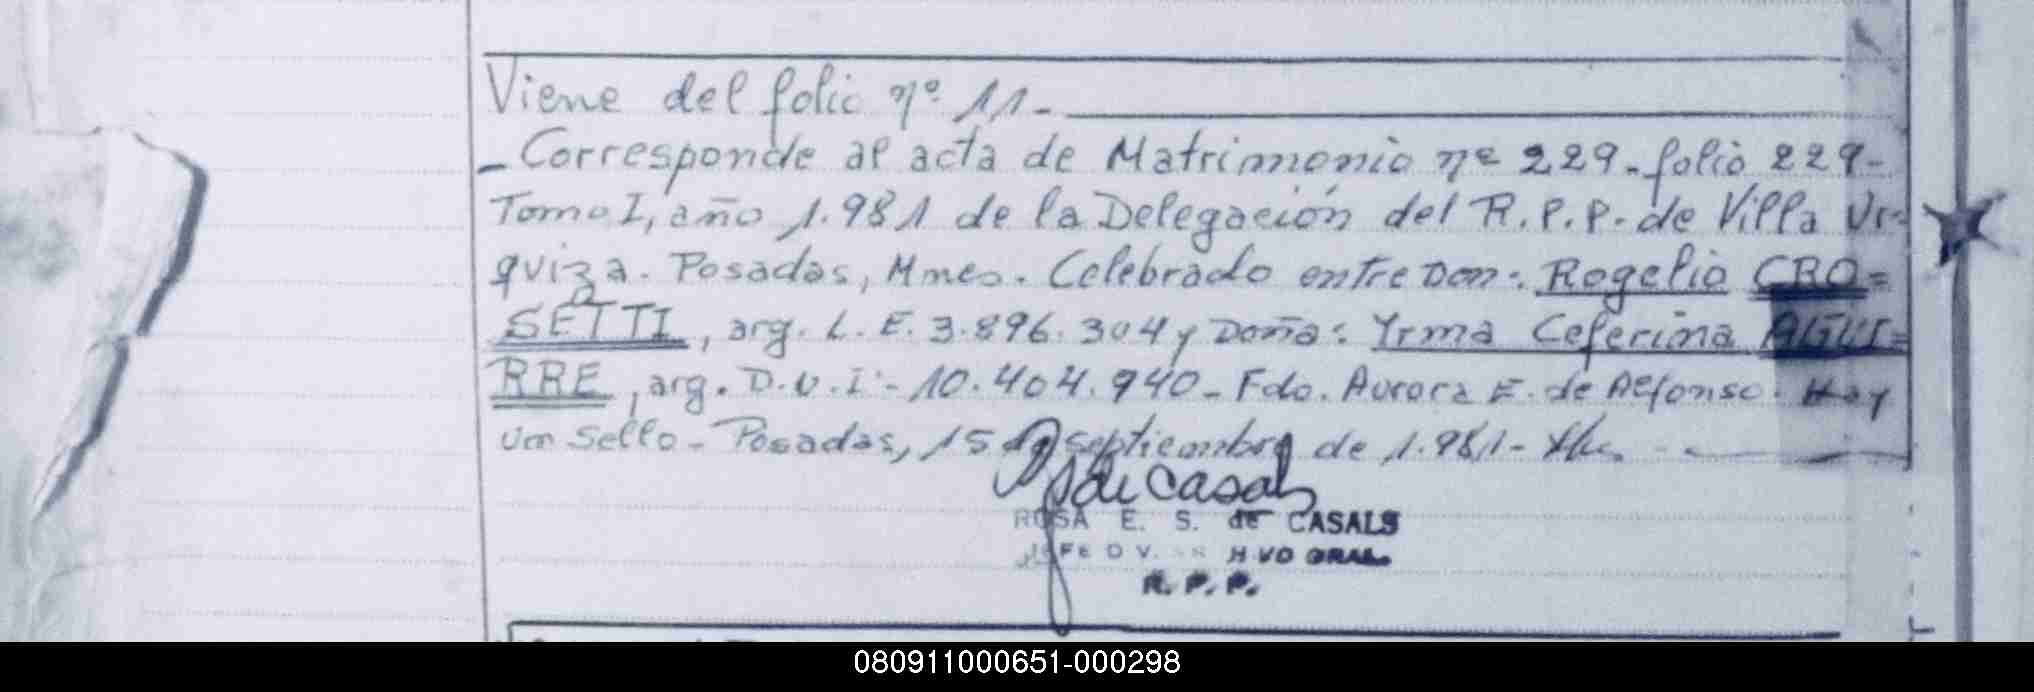 Viene del folio nº 11-
- Corresponde al acta de Matrimonio nº 229-folio 229-
Tomo I, año 1.981 de la Delegación del R.P.P. de Villa Ur=
quiza. Posadas, Mnes. Celebrado entre Don: Rogelio CRO=
SETTI, arg. L.E. 3.896.304 y Doña: Yrma Ceferina AGUI=
RRE, arg. D.N.I:- 10.404.940- Fdo. Aurora E. de Alfonso. Hay
un Sello- Posadas, 15 de septiembre de 1.981-
de Casals
ROSA E. S. de CASALS
JEFE D V. AR H VO GRAL.
R. P. P.
080911000651-000298